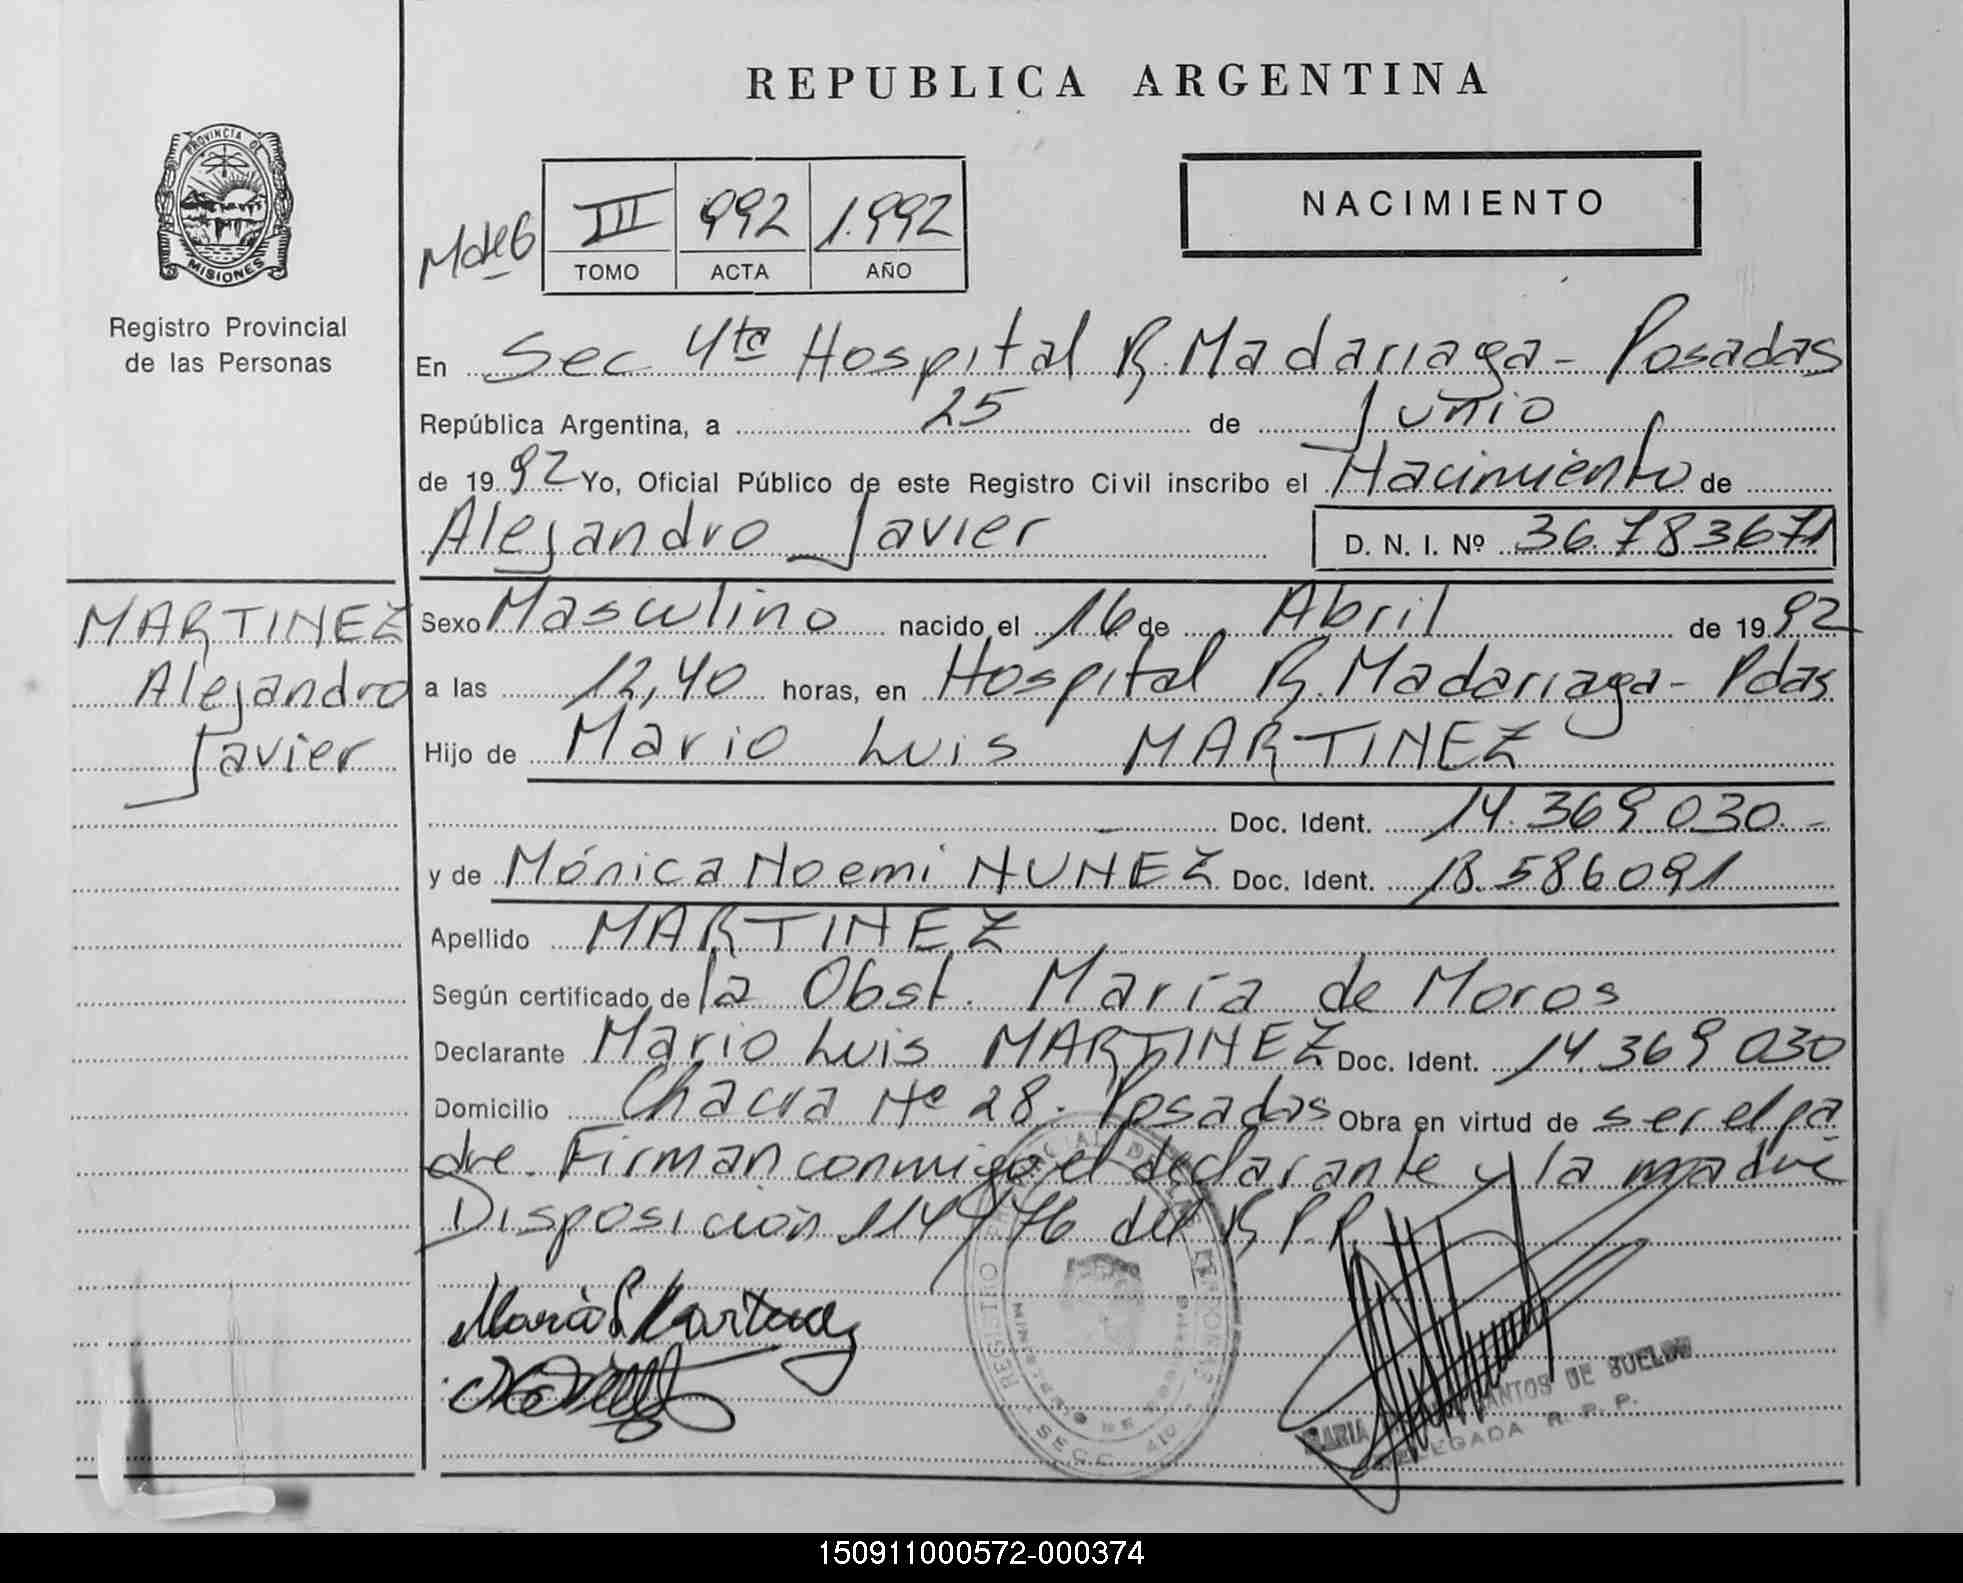 REPUBLICA ARGENTINA
PROVINCIA DE
MISIONES
Registro Provincial
de las Personas
III 992 1.992
TOMO ACTA AÑO
NACIMIENTO
En Sec 4ta Hospital R. Madariaga - Posadas
República Argentina, a 25 de Junio
de 1992 Yo, Oficial Público de este Registro Civil inscribo el Nacimiento de
Alejandro Javier D. N. I. Nº 36.783671
MARTINEZ
Alejandro
Javier
Sexo Masculino nacido el 16 de Abril de 1992
a las 12,40 horas, en Hospital R. Madariaga - Pdas
Hijo de Mario Luis MARTINEZ
Doc. Ident. 14.369.030.-
y de Mónica Noemi NUNEZ Doc. Ident. 18.586091
Apellido MARTINEZ
Según certificado de la Obst. María de Moros
Declarante Mario Luis MARTINEZ Doc. Ident. 14.369 030
Domicilio Chacra Nº 28. Posadas Obra en virtud de ser el pa
dre. Firman conmigo el declarante y la madre
Disposición 114/76 del R.P.P.
REGISTRO PROVINCIAL DE LAS PERSONAS
MINISTERIO DE GOBIERNO
MARIA SANTOS DE BUELOW
DELEGADA R. P. P.
150911000572-000374